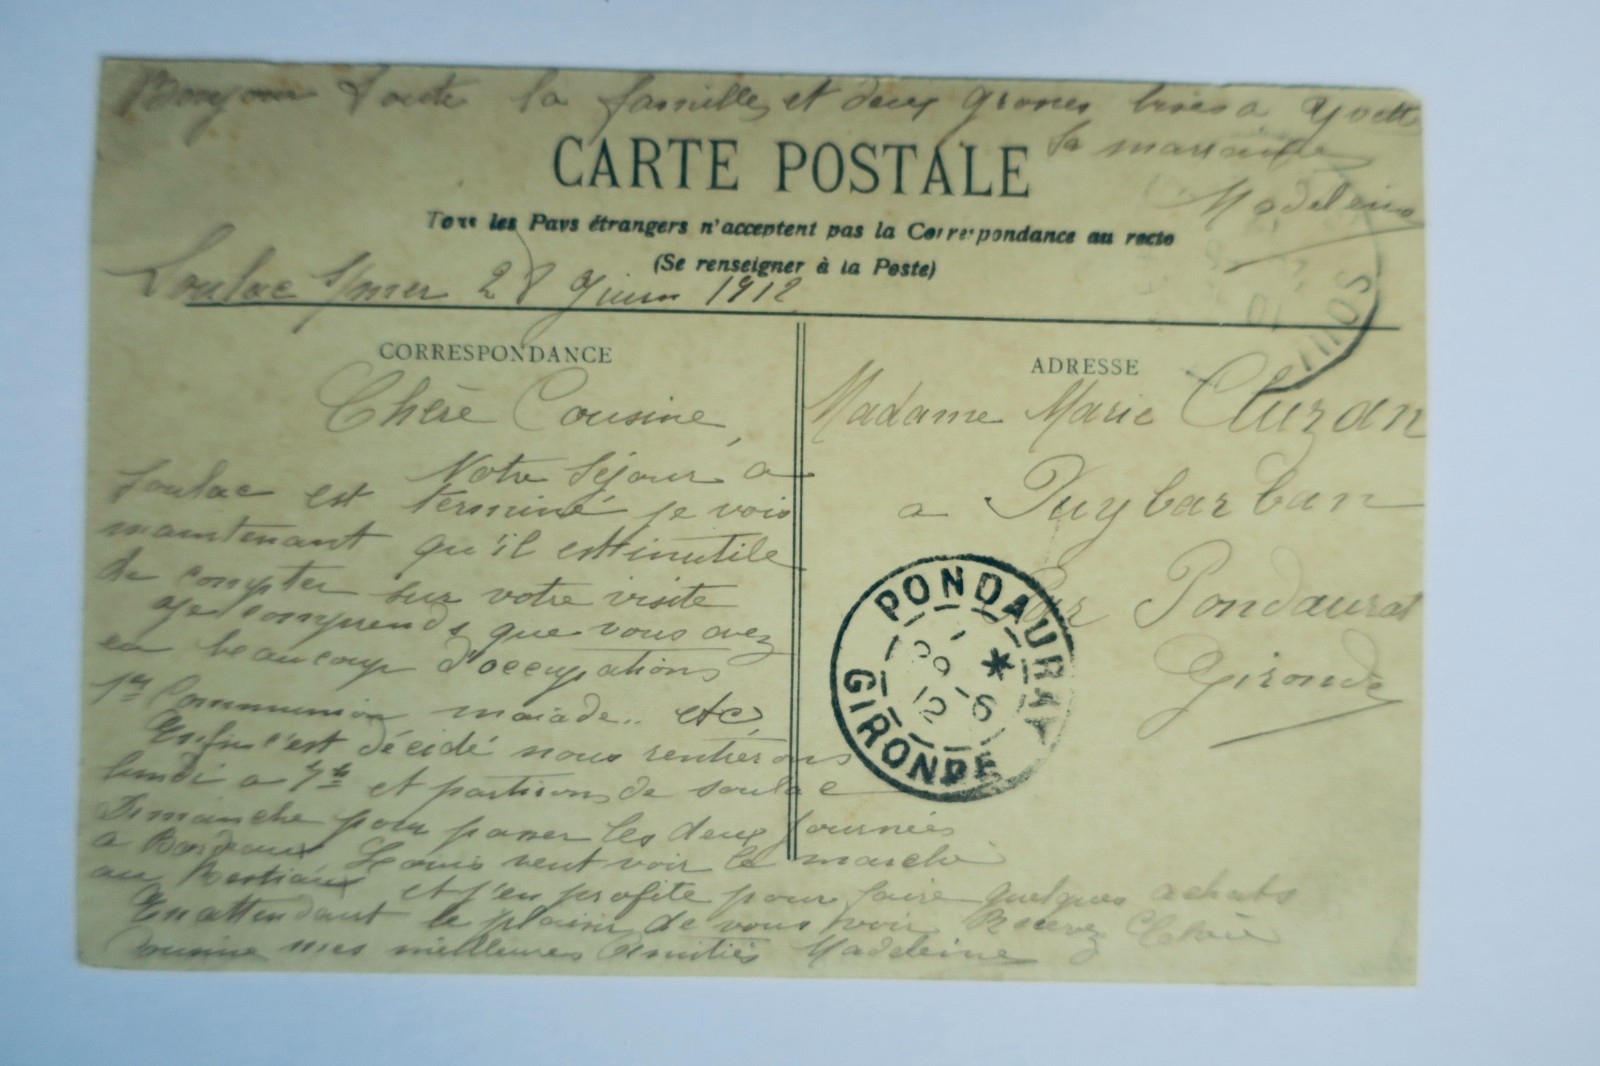 Bonjour toute la famille, et deux grosses bises a Yvette
Sa marraine
Madeleine
CARTE POSTALE
Tous les Pays étrangers n'acceptent pas la Correspondance au recto
(Se renseigner à la Poste)
Soulac s/mer 28 Juin 1912
CORRESPONDANCE
Chère Cousine,
Notre Séjour a
Soulac est terminé je vois
maintenant qu'il est inutile
de compter sur votre visite
Je comprends que vous avez
eu beaucoup d'occupations
1re Communion malade.. etc
Enfin c'est décidé nous rentrerons
lundi a 7h et partirons de Soulac
Dimanche pour passer les deux journées
a Bordeaux, Louis veut voir le marché
au Bestiaux et j'en profite pour faire quelques achats
En attendant le plaisir de vous voir Recevez Chère
Cousine mes meilleures Amitiés Madeleine
ADRESSE
Madame Marie Cluzan
a Puybarban
Par Pondaurat
Gironde
PONDAURAT
29 - 6
12
GIRONDE
SOULAC